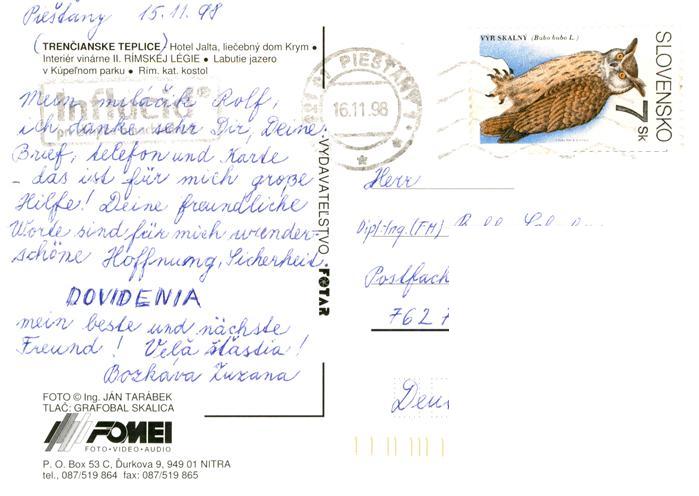 Piešťany 15.11.98
(TRENČIANSKE TEPLICE) Hotel Jalta, liečebný dom Krym •
Interiér vinárne II. RÍMSKEJ LÉGIE • Labutie jazero
v Kúpeľnom parku • Rím. kat. kostol
Mein miláčik Rolf,
ich danke sehr Dir, Deine
Brief, telefon und Karte
- das ist für mich große
Hilfe! Deine freundliche
Worte sind für mich wunder-
schöne Hoffnung, Sicherheit.
DOVIDENIA
mein beste und nächste
Freund! Velă šťastia!
Bozkáva Zuzana
FOTO © Ing. JÁN TARÁBEK
TLAČ: GRAFOBAL SKALICA
FOMEI
FOTO•VIDEO•AUDIO
P. O. Box 53 C, Ďurkova 9, 949 01 NITRA
tel., 087/519 864 fax: 087/519 865
VYDAVATEĽSTVO FOTAR
PIEŠŤANY 1
16.11.98
VÝR SKALNÝ (Bubo bubo L.)
SLOVENSKO
7 Sk
Herr
Dipl.-Ing. (FH)
Postfach
762